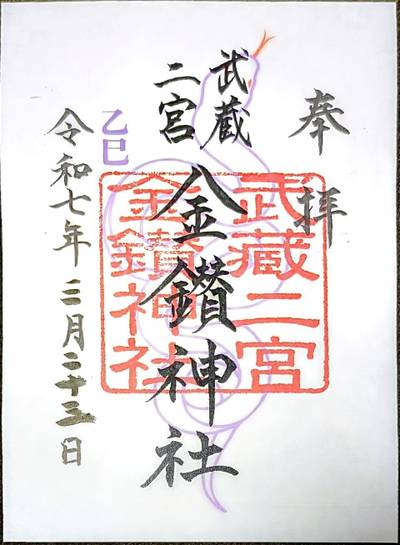 奉拝
武蔵
二宮
金鑚神社
武蔵二宮
金鑚神社
乙巳
令和七年三月二十三日